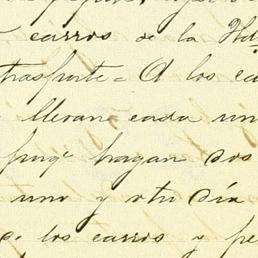 carros de la Hda
trasporte = A los ca
llevan cada un
porqe hagan dos
uno y otro día
los carros y pe